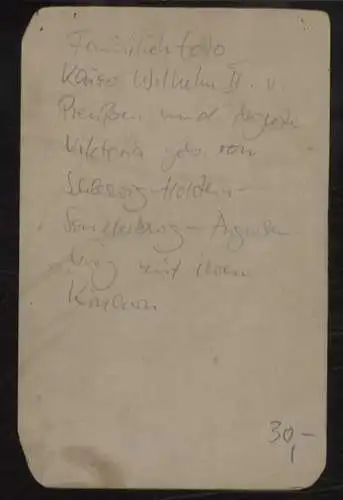 Familienfoto
Kaiser Wilhelm II. v.
Preußen und Auguste
Viktoria geb. von
Schleswig-Holstein-
Sonderburg-Augusten
burg mit ihren
Kindern
30,-